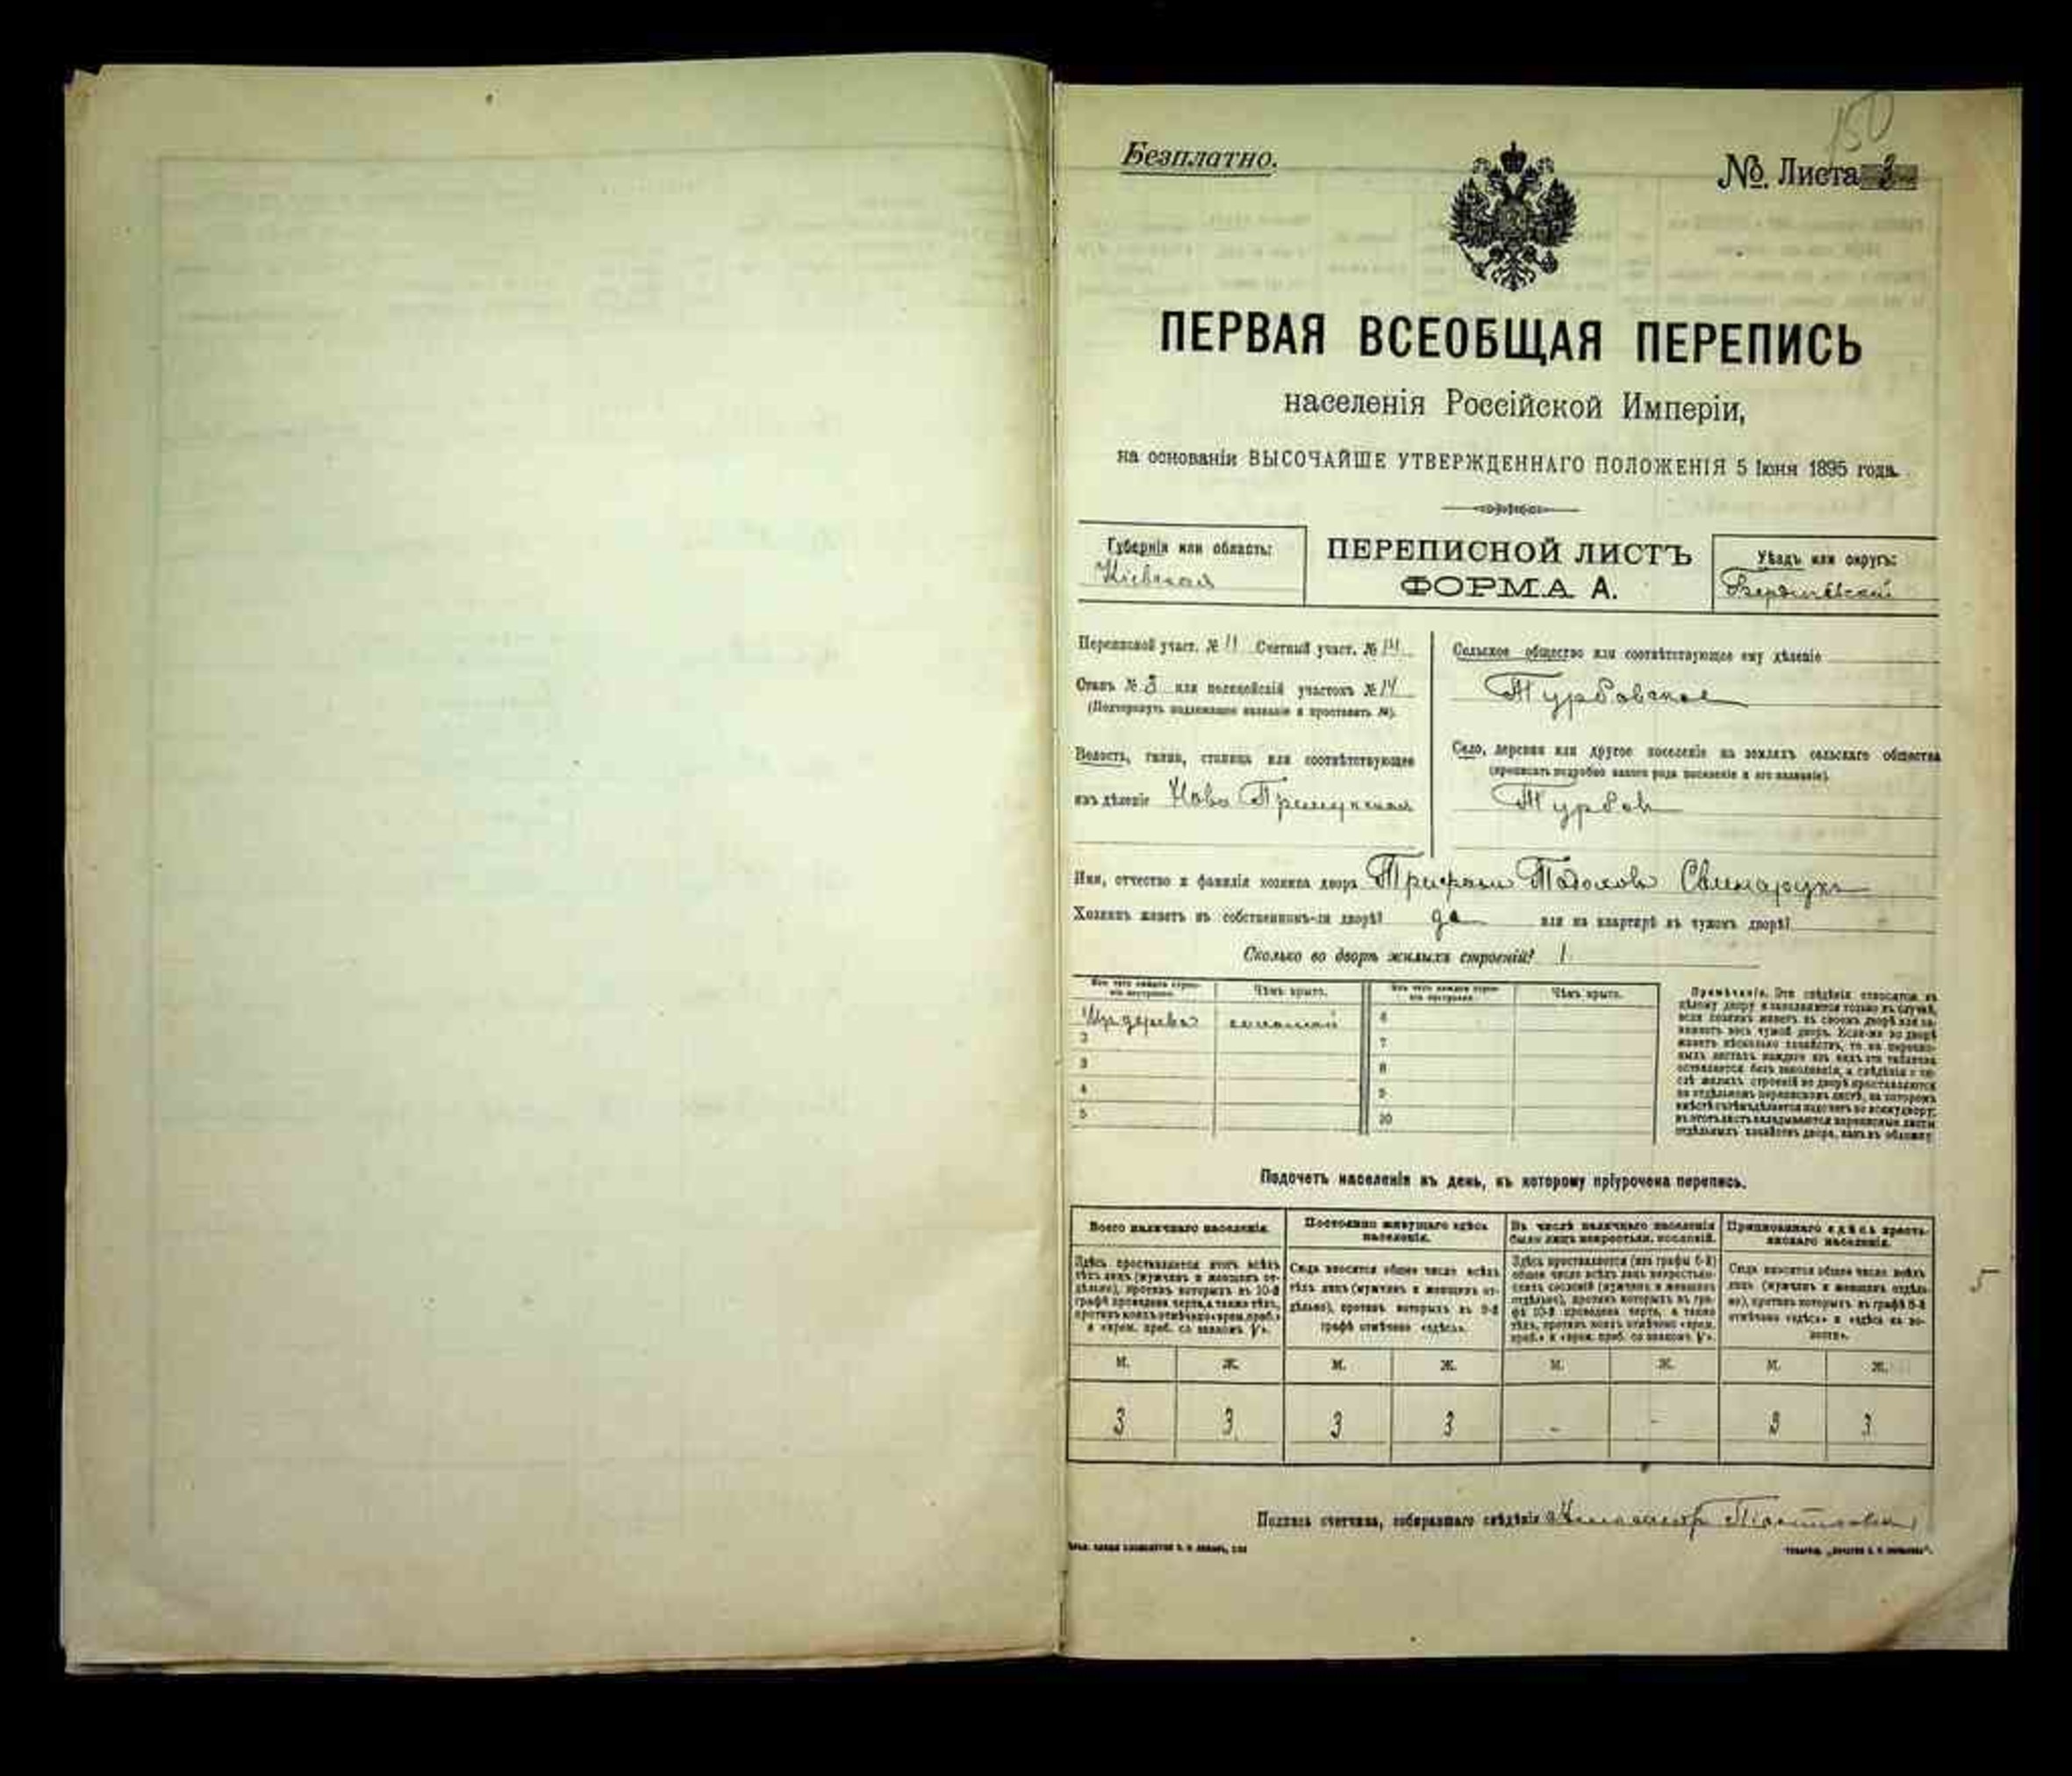 150
Безплатно.
№. Листа 3
ПЕРВАЯ ВСЕОБЩАЯ ПЕРЕПИСЬ
населенія Россійской Имперіи,
на основаніи ВЫСОЧАЙШЕ УТВЕРЖДЕННАГО ПОЛОЖЕНІЯ 5 Іюня 1895 года.
Губернія или область:
Кіевская
ПЕРЕПИСНОЙ ЛИСТЪ
ФОРМА А.
Уѣздъ или округъ:
Бердичевскій
Переписной участ. № 11 Счетный участ. № 14
Станъ № 3 или полицейскій участокъ № 14
(Подчеркнуть надлежащее названіе и проставить №).
Волость, гмина, станица или соотвѣтствующее
имъ дѣленіе Ново Прилукская
Сельское общество или соотвѣтствующее ему дѣленіе
Турбовское
Село, деревня или другое поселеніе на земляхъ сельскаго общества
(прописать подробно какого рода поселеніе и его названіе).
Турбов
Имя, отчество и фамилія хозяина двора Свинарукъ
Хозяинъ живетъ въ собственномъ-ли дворѣ? да или на квартирѣ въ чужомъ дворѣ?
Сколько во дворѣ жилыхъ строеній? 1
Изъ чего каждое строеніе построено. Чѣмъ крыто. Изъ чего каждое строеніе построено. Чѣмъ крыто.
Из дерева соломой 6
2 7
3 8
4 9
5 10
Примѣчаніе. Эти свѣдѣнія относятся къ
цѣлому двору и заполняются только въ случаѣ,
если хозяинъ живетъ въ своемъ дворѣ или за-
нимаетъ весь чужой дворъ. Если-же во дворѣ
живетъ нѣсколько хозяйствъ, то на перепис-
ныхъ листахъ каждаго изъ нихъ эта табличка
оставляется безъ заполненія, а свѣдѣнія о чи-
слѣ жилыхъ строеній во дворѣ проставляются
на отдѣльномъ переписномъ листѣ, на которомъ
вмѣстѣ съ тѣмъ дѣлается подсчетъ по всему двору;
въ этотъ листъ вкладываются переписные листы
отдѣльныхъ хозяйствъ двора, какъ въ обложку.
Подсчетъ населенія въ день, къ которому пріурочена перепись.
Всего наличнаго населенія.
Здѣсь проставляется итогъ всѣхъ
тѣхъ лицъ (мужчинъ и женщинъ от-
дѣльно), противъ которыхъ въ 10-й
графѣ проведена черта, а также тѣхъ,
противъ коихъ отмѣчено «врем. преб.»
и «врем. преб. со знакомъ V».
Постоянно живущаго здѣсь
населенія.
Сюда вносится общее число всѣхъ
тѣхъ лицъ (мужчинъ и женщинъ от-
дѣльно), противъ которыхъ въ 9-й
графѣ отмѣчено «здѣсь».
Въ числѣ наличнаго населенія
было лицъ некрестьян. сословій.
Здѣсь проставляется (изъ графы 6-й)
общее число всѣхъ лицъ некрестьян-
скихъ сословій (мужчинъ и женщинъ
отдѣльно), противъ которыхъ въ гра-
фѣ 10-й проведена черта, а также
тѣхъ, противъ коихъ отмѣчено «врем.
преб.» и «врем. преб. со знакомъ V».
Приписаннаго здѣсь кресть-
янскаго населенія.
Сюда вносится общее число всѣхъ
лицъ (мужчинъ и женщинъ отдѣль-
но), противъ которыхъ въ графѣ 8-й
отмѣчено «здѣсь» и «здѣсь въ во-
лости».
М. Ж. М. Ж. М. Ж. М. Ж.
3 3 3 3 - - 3 3
5
Подпись счетчика, собиравшаго свѣдѣнія